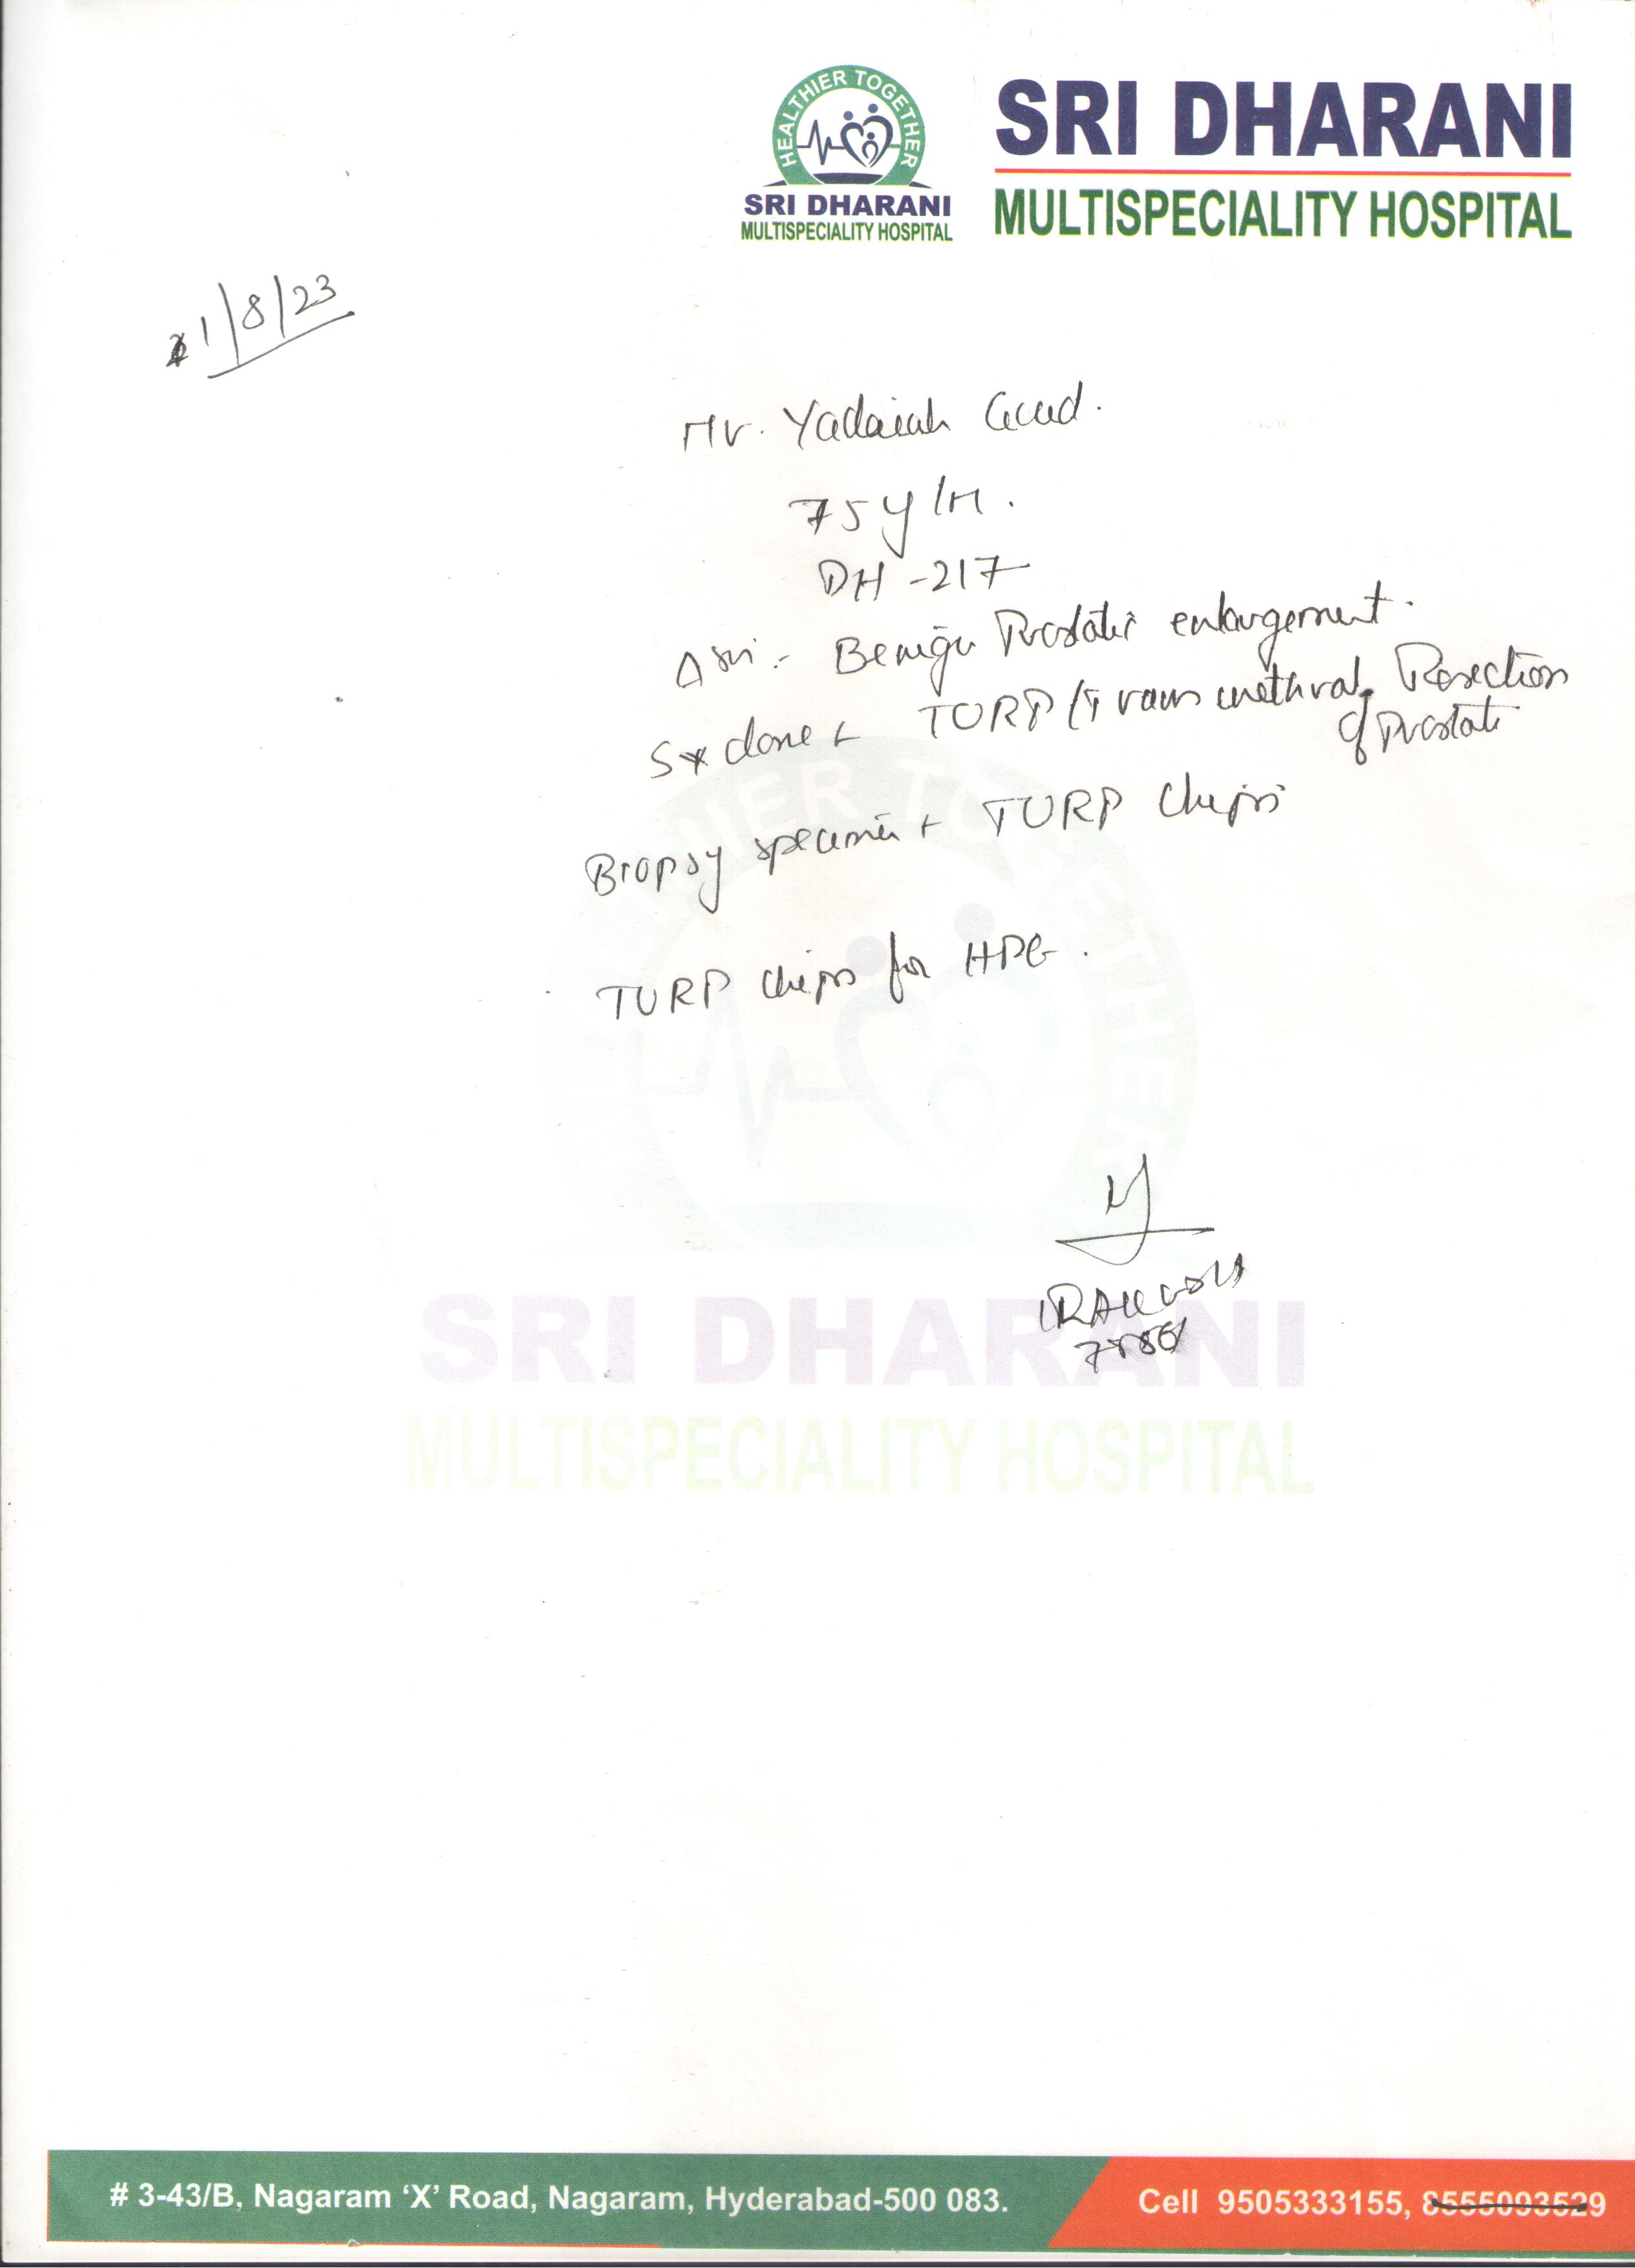 HEALTHIER TOGETHER
SRI DHARANI
MULTISPECIALITY HOSPITAL
SRI DHARANI
MULTISPECIALITY HOSPITAL
1/8/23
Mr. Yadaiah Goud.
75y/M.
DH-217
Benign Prostatic enlargement.
Sx done TURP (Transurethral Resection
of Prostate
Biopsy specimen TURP chips
TURP chips for HPE.
HEALTHIER TOGETHER
SRI DHARANI
MULTISPECIALITY HOSPITAL
# 3-43/B, Nagaram ‘X’ Road, Nagaram, Hyderabad-500 083.
Cell 9505333155, 8555093529